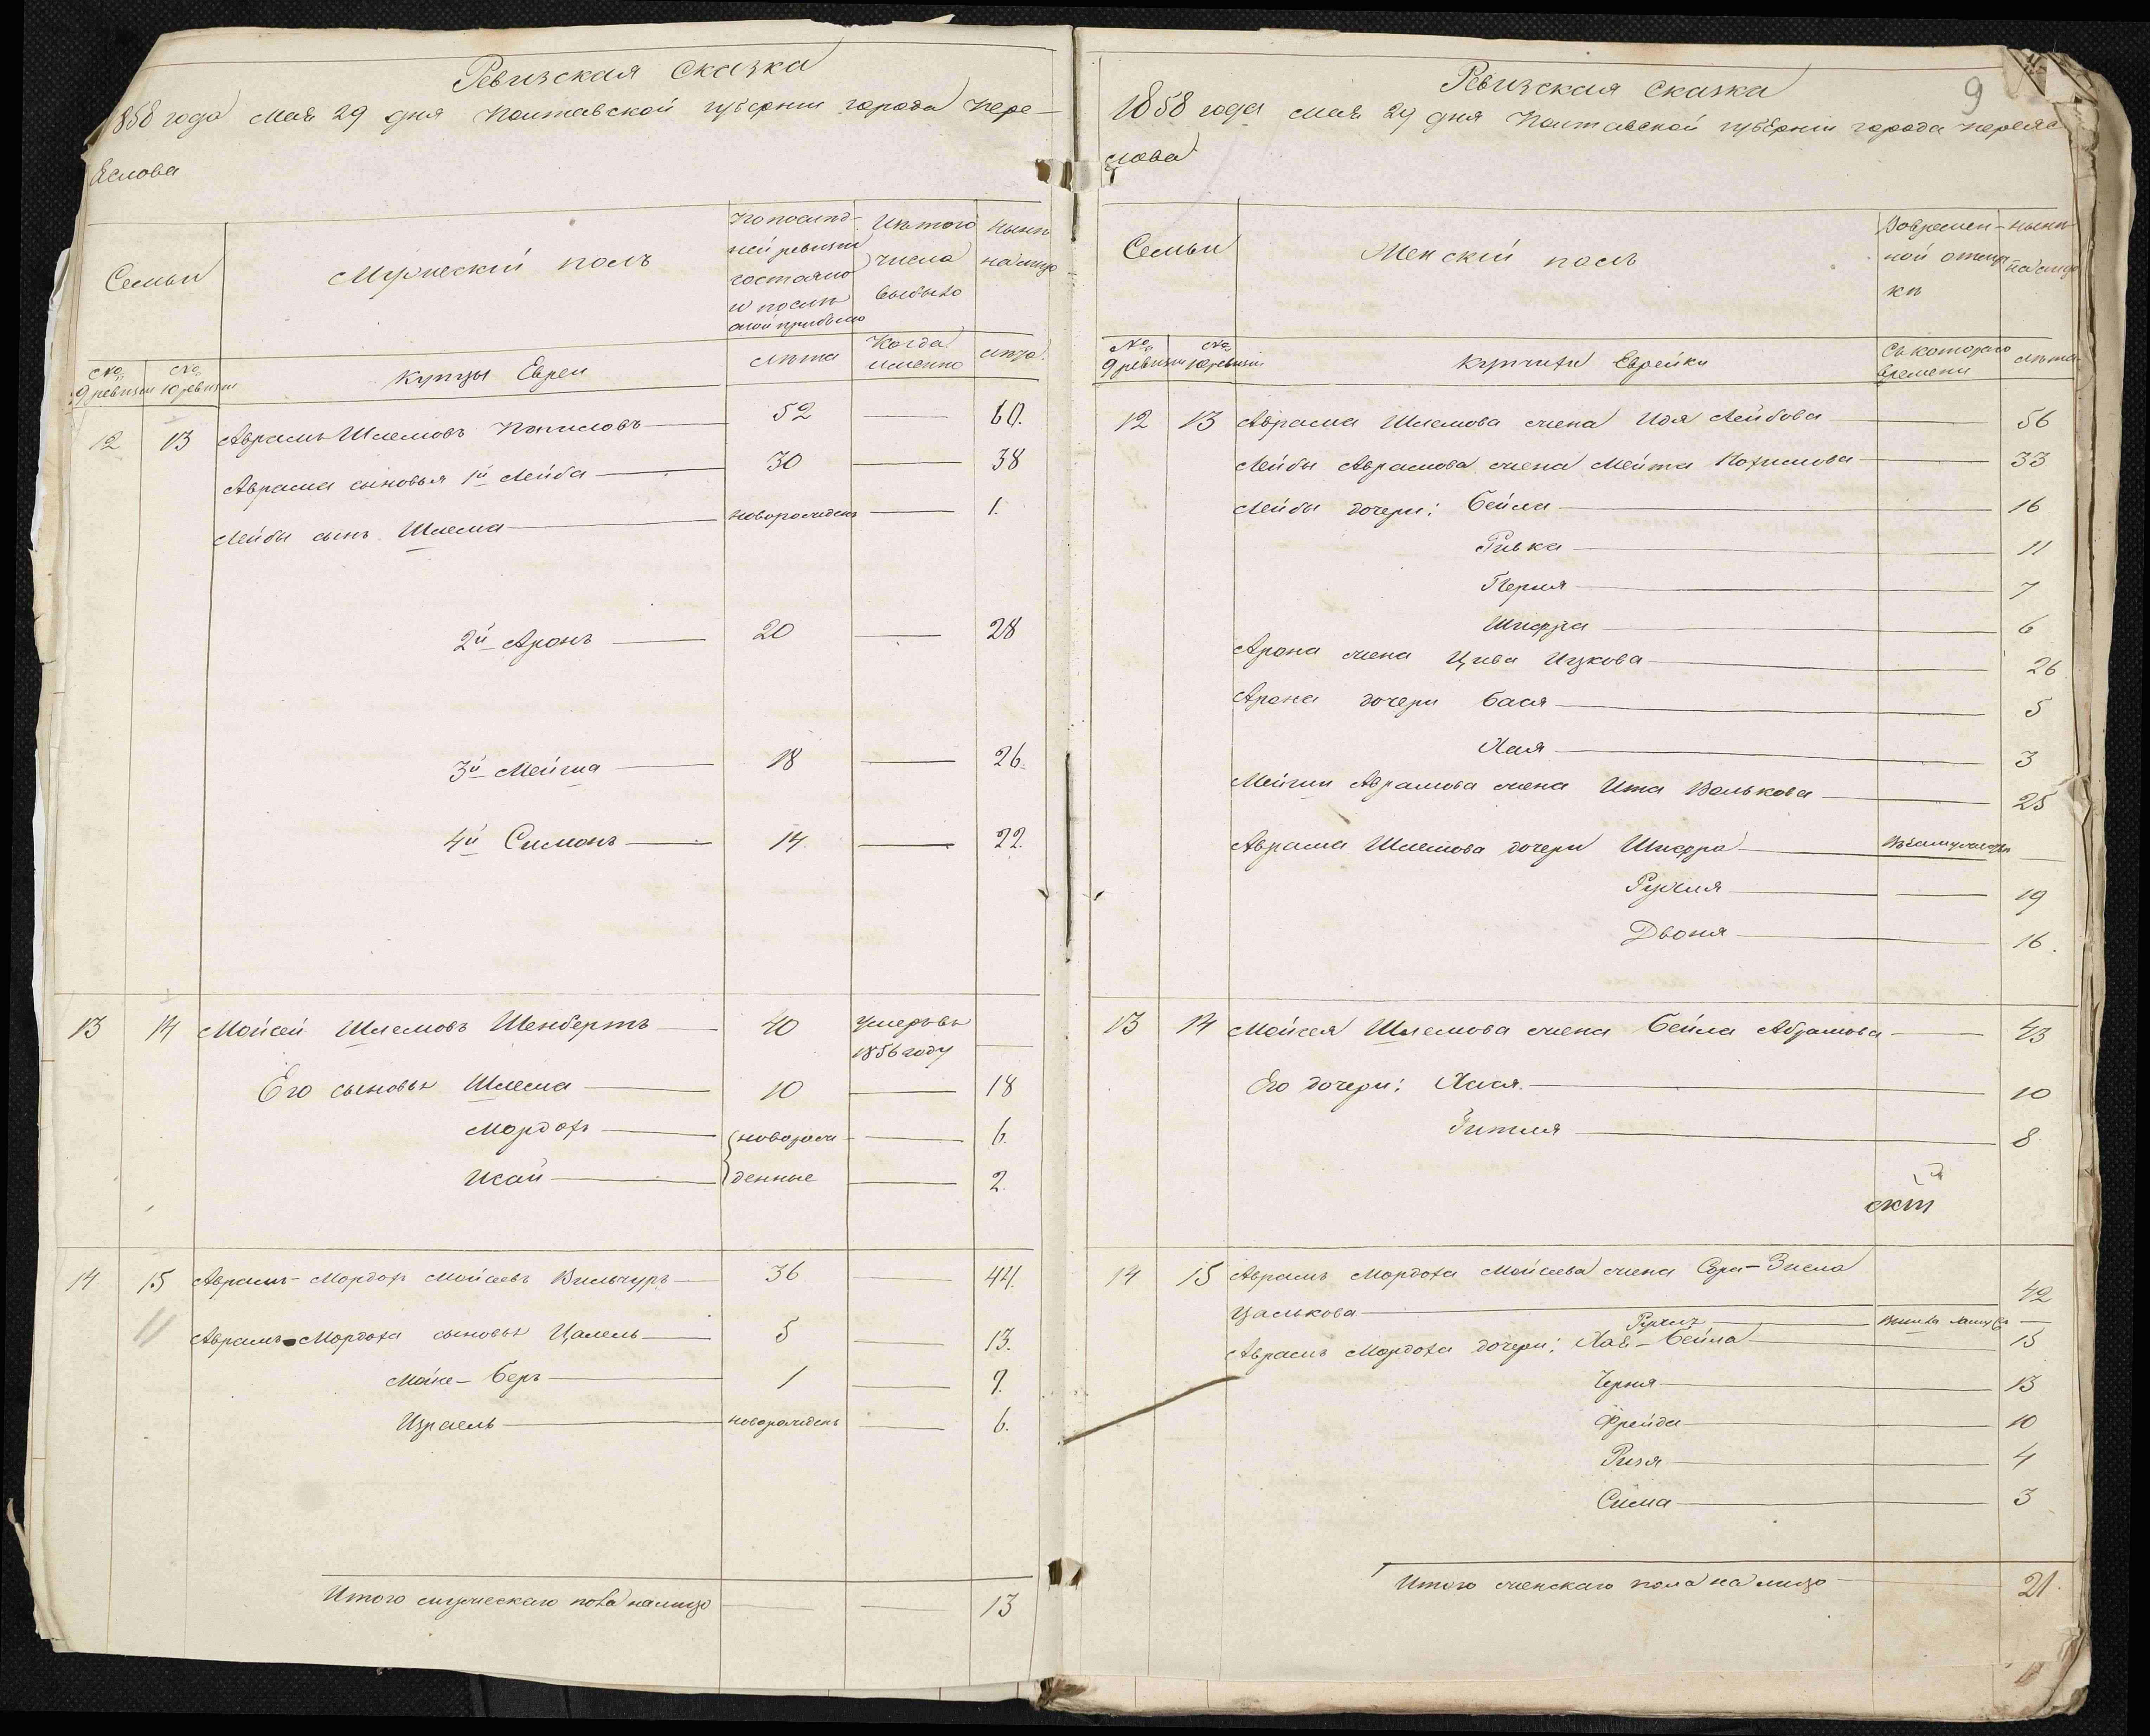 Ревизская Сказка
1858 года Мая 29 дня Полтавской губернии города Пере-
яслова
Семьи
Мужескій полъ
По послѣд-
ней ревизіи
состояло
и послѣ
оной прибыло
Изъ того
числа
выбыло
Нынѣ
на лицо
№
9 ревизіи
№
10 ревизіи
Купцы Евреи
Лѣта
Когда
именно
Лѣта
12 13 Аврамъ Шлемовъ 52 — 60.
Аврама сыновья 1й Лейба — 30 — 38
Лейбы сынъ Шлема — новорожденъ — 1.
2й Аронъ — 20 — 28
3й Мейша — 18 — 26.
4й Симонъ — 14. — 22.
13 14 Мойсей Шлемовъ Шенбертъ — 40 Умеръ въ
1856 году —
Его сыновья Шлема — 10 — 18
Мордохъ — новорож- — 6.
Исай — денные — 2.
14 15 Аврамъ-Мордохъ Мойсеевъ Вильчуръ — 36 — 44.
11 Аврамъ-Мордоха сыновья Цалель — 5 — 13.
Мойше-Беръ — 1 — 9.
Израель — новорожденъ — 6.
Итого мужескаго пола на лицо — 13
9
Ревизская Сказка
1858 года Мая 29 дня Полтавской губерніи города Переяс
лова
Семьи
Женскій полъ
Во времен-
ной отлуч-
кѣ
Нынѣ
на лицо
№
9 ревизіи
№
10 ревизіи
Купчихи Еврейки
Съ котораго
времени
Лѣта
12 13 Аврама Шлемова жена Идя Лейбова — 56
Лейбы Аврамова жена Мейта — 33
Лейбы дочери: Бейла — 16
Ривка — 11
Перля — 7
Шифра — 6
Арона жена Цива Ицкова — 26
Арона дочери Бася — 5
Хая — 3
Мейши Аврамова жена Ита Волькова — 25
Аврама Шлемова дочери Шифра — Въ замужествѣ —
Рухля — 19
Двоня — 16.
13 14 Мойсея Шлемова жена Бейла Абрамова — 43
Его дочери: Хася — 10
Гитля — 8
14 15 Аврамъ Мордоха Мойсеева жена Сора-Зисла
Цалькова — 42
Рухля — —
Аврамъ Мордоха дочери: Хая-Бейла — 15
Черня — 13
Фрейда — 10
Ризя — 4
Сима — 3
Итого женскаго пола на лицо — 21.